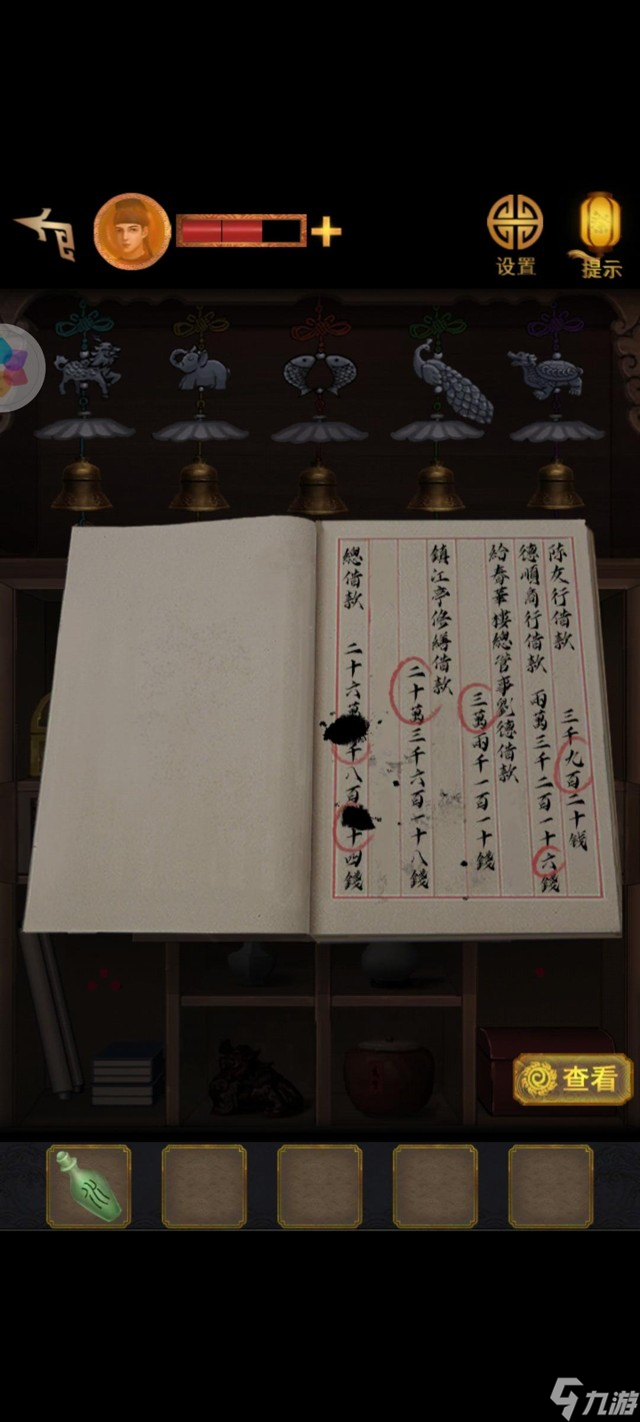 设置
提示
陈友行借款 三千九百二十錢
德順商行借款 兩萬三千二百一十六錢
給春華樓總管事劉德借款
三萬兩千一百一十錢
鎮江亭修繕借款
二十萬三千六百一十八錢
總借款 二十六萬千八百十四錢
查看
水
九游